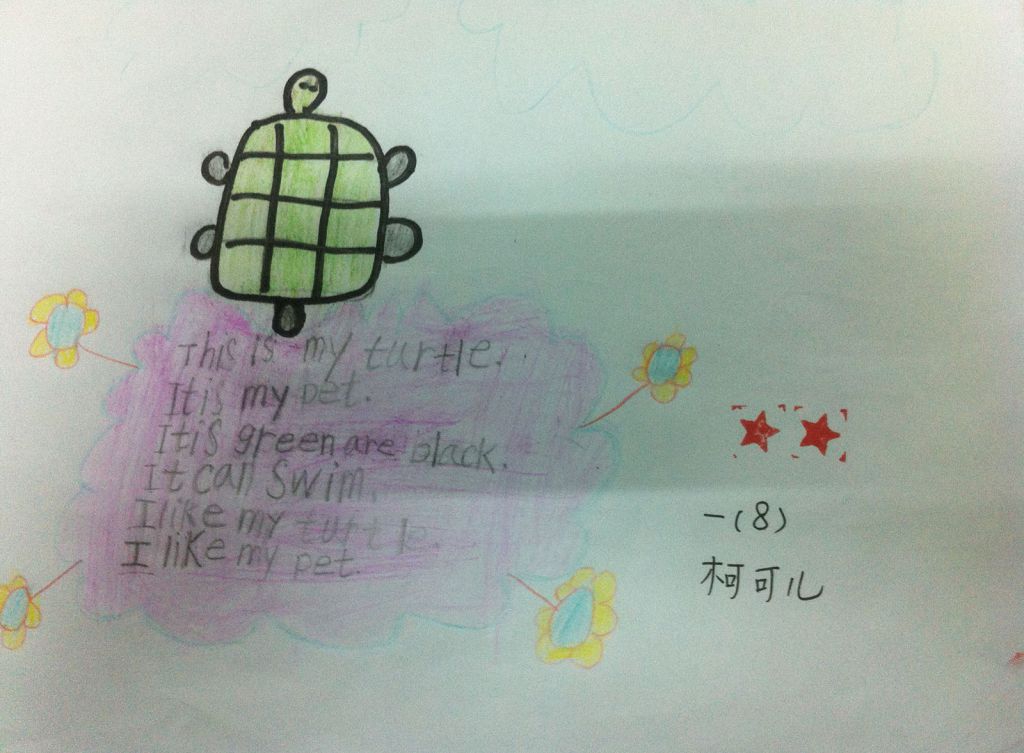 This is my turtle.
It is my pet.
It is green are black.
It can swim.
I like my turtle.
I like my pet.
一(8)
柯可儿